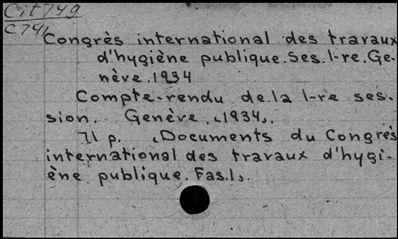 Cit749
C741
Congrès international des travaux
d'hygiène publique. Ses. 1-re. Ge-
nève. 1934
Compte-rendu de la 1-re ses-
sion. Genève, „1934„.
71 p. „Documents du Congrès
international des travaux d'hygi-
ène publique. Fas.1„.